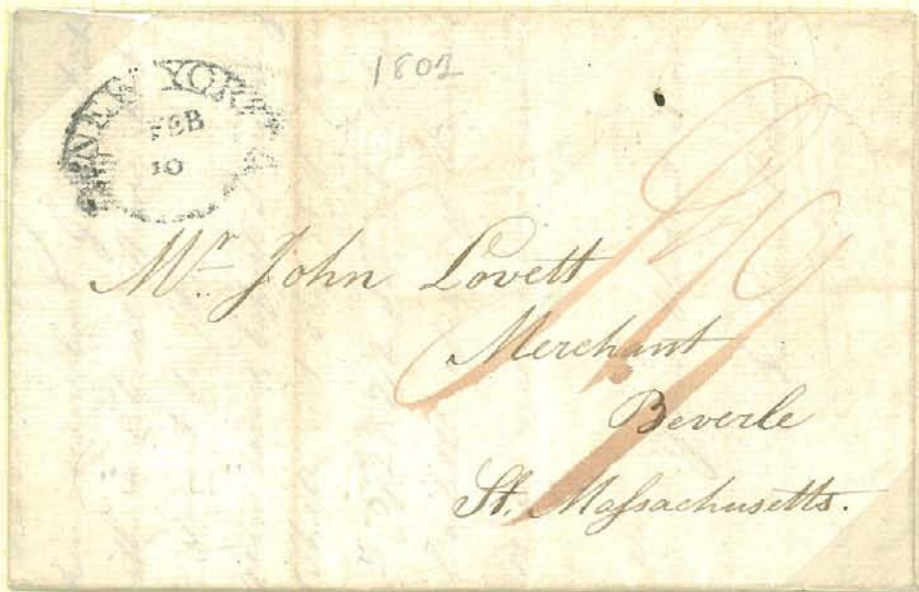 1802
NEW YORK
FEB
10
Mr. John Lovett
Merchant
Beverle
St. Maſsachusetts.